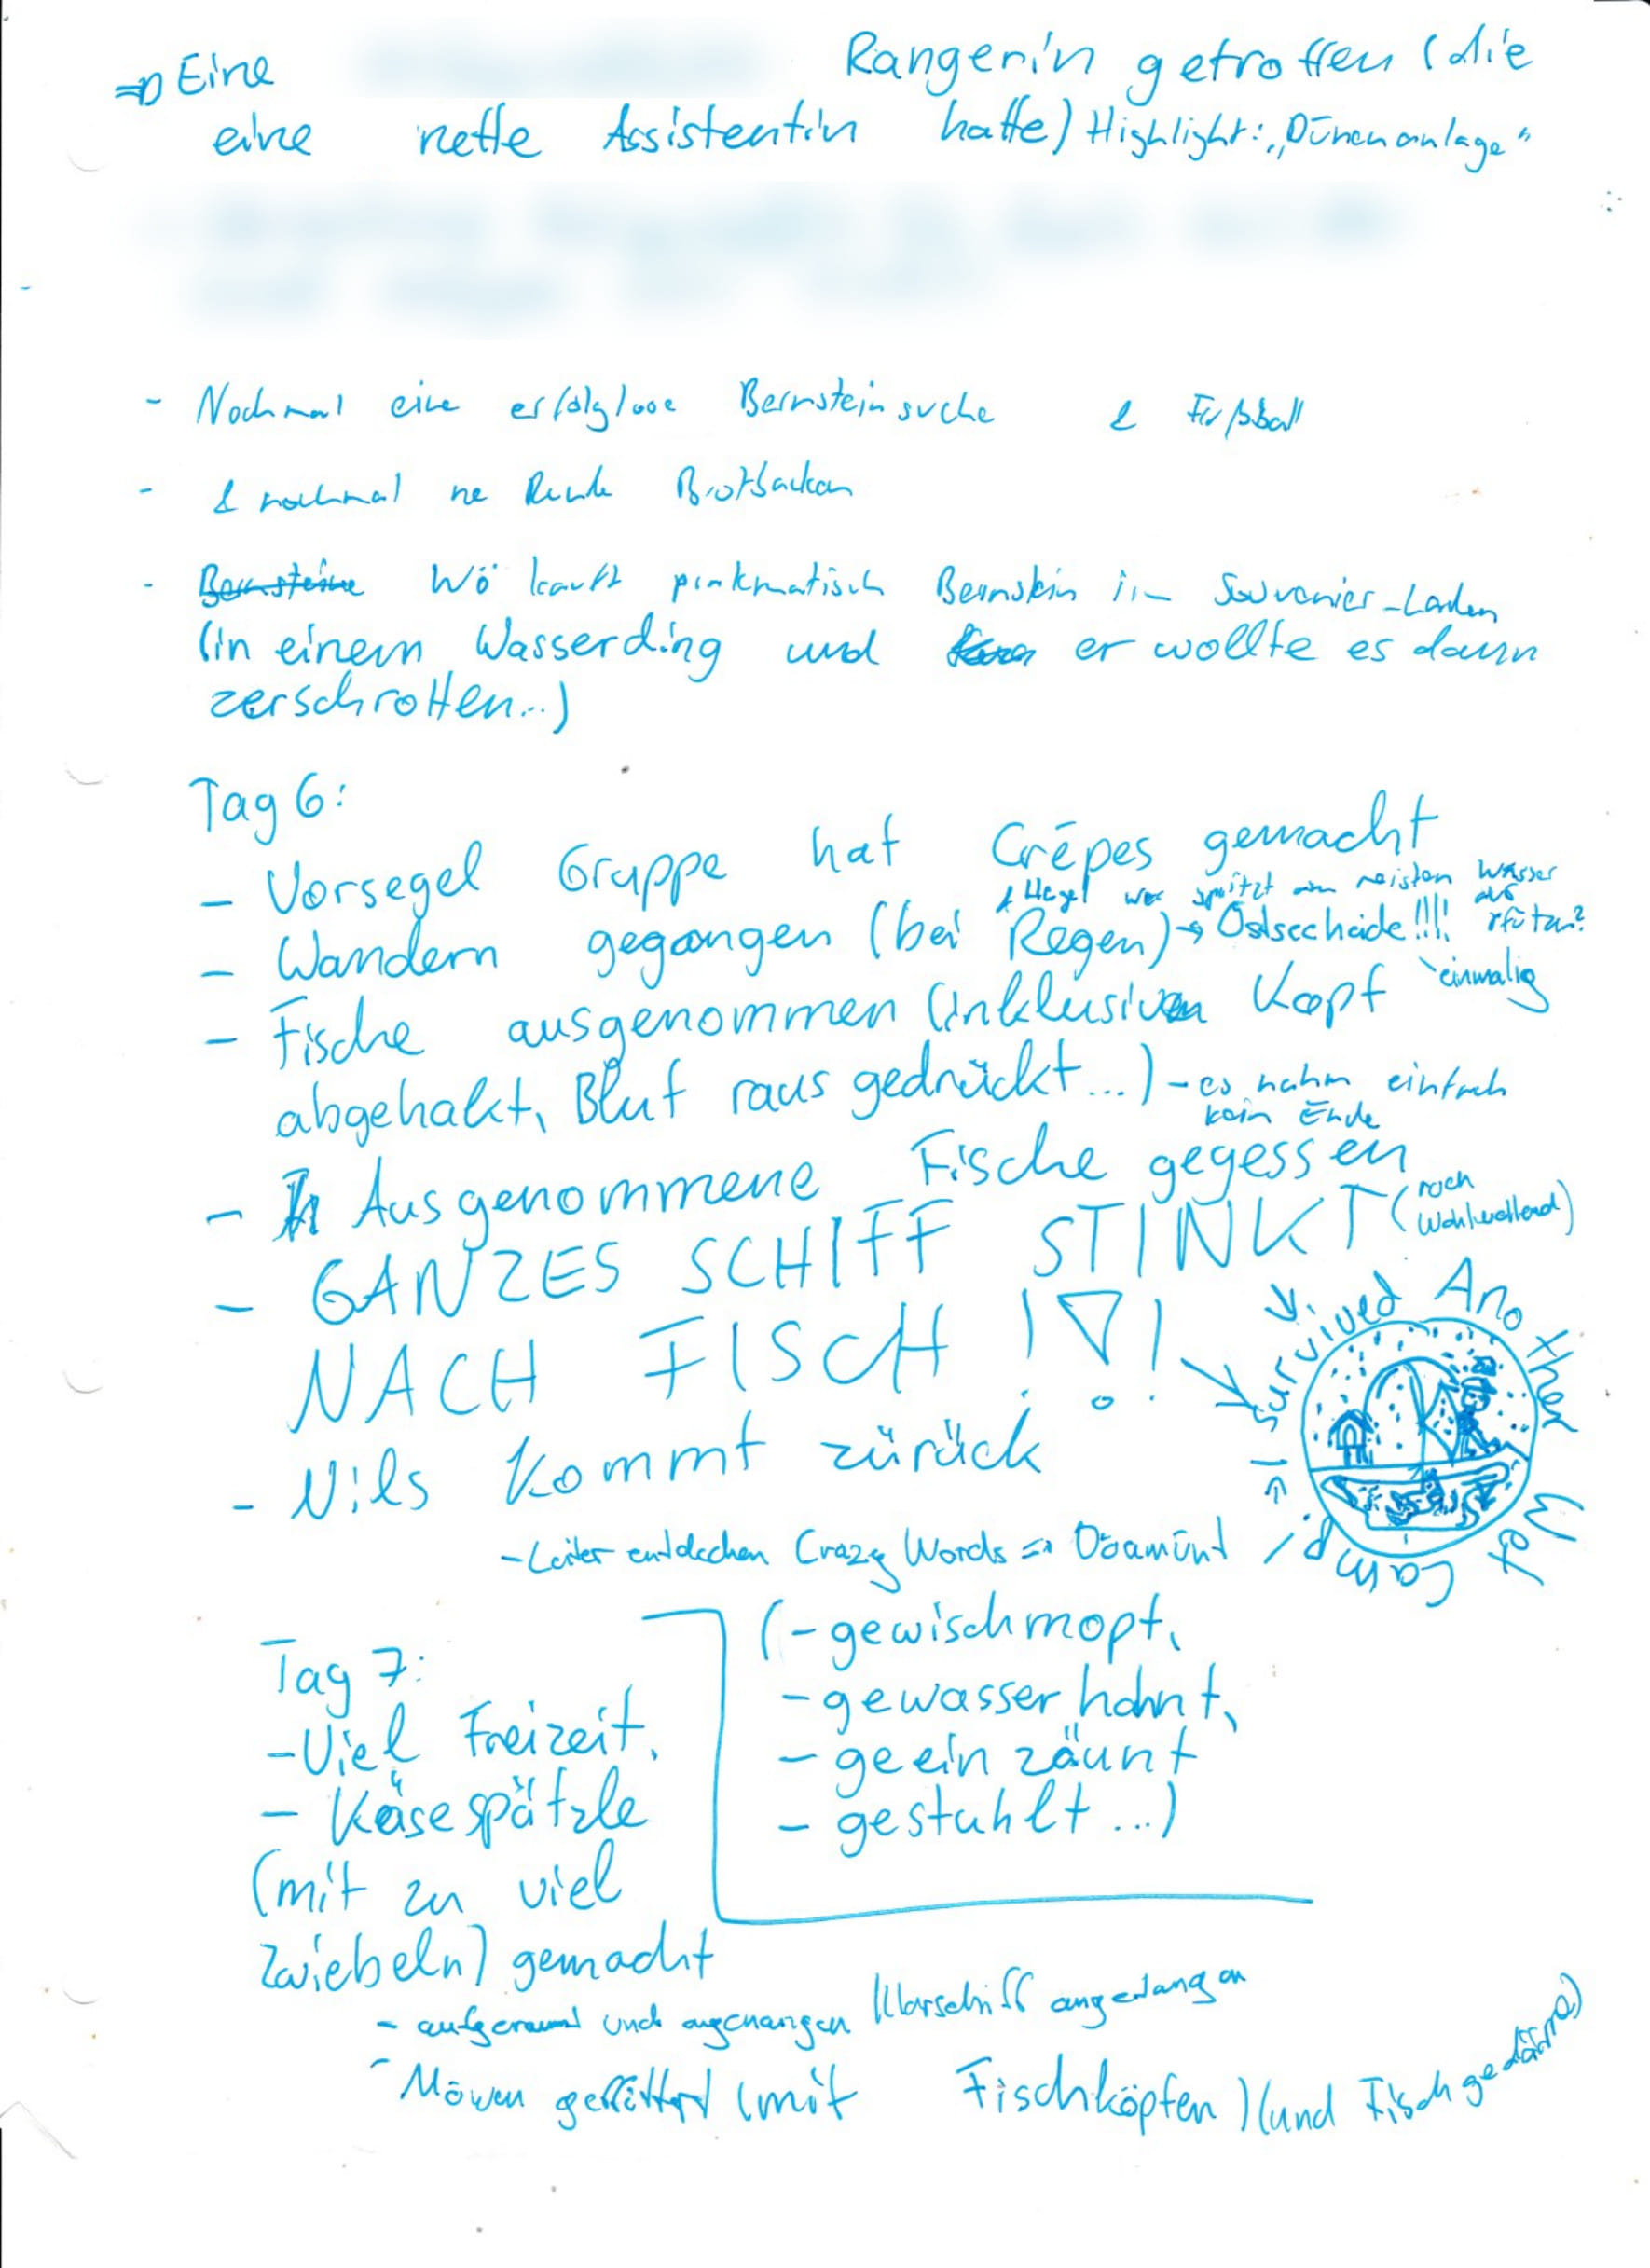 ⇒ Eine Rangerin getroffen (die
eine nette Assistentin hatte) Highlight: „Dünenanlage"
- Nochmal eine erfolglose Bernsteinsuche & Fußball
- & nochmal ne Runde Brotbacken
- Bernsteine Wö kauft prakmatisch Bernstein im Souvenier-Laden
(in einem Wasserding und er wollte es dann
zerschrotten...)
Tag 6:
- Vorsegel Gruppe hat Crêpes gemacht
& Hagel wer spritzt am meisten Wasser aus
- Wandern gegangen (bei Regen) → Ostseeheide!!!! Pfützen?
einmalig
- Fische ausgenommen (inklusiven Kopf
abgehakt, Blut raus gedrückt...) - es nahm einfach
kein Ende
- Ausgenommene Fische gegessen
- GANZES SCHIFF STINKT (noch
Wohlwollend)
NACH FISCH !?!
- Nils kommt zürück
I survived Another
Mot Camp!
- Leiter entdecken Crazy Words =>
Tag 7:
- Viel Freizeit,
- Käsespätzle
(mit zu viel
Zwiebeln) gemacht
(- gewischmopt,
- gewasserhahnt,
- geeinzäunt
- gestuhlt...)
- aufgeraumt und angefangen Klarschiff angefangen
- Möwen gefüttert (mit Fischköpfen) (und Fischgedärme)